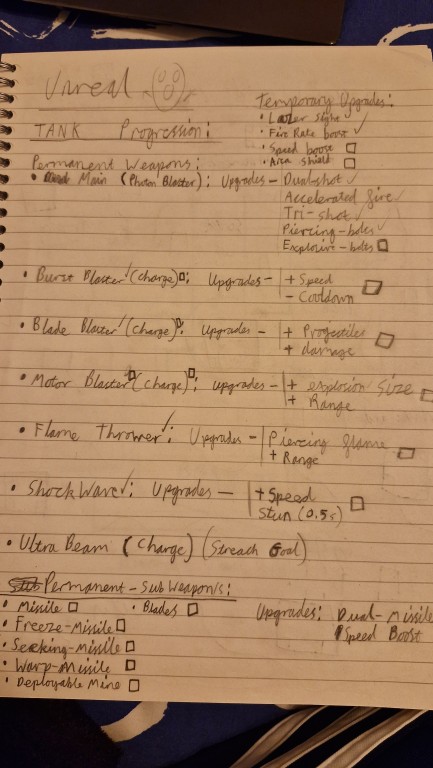 Unreal
TANK Progression:
Temporary Upgrades:
• Lazer sight ✓
• Fire Rate boost ✓
• Speed boost ☐
• Area shield ☐
Permanent Weapons:
• Main (Photon Blaster): Upgrades - Dual-shot ✓
Accelerated fire ✓
Tri-shot ✓
Piercing-bolts ✓
Explosive-bolts ☐
• Burst Blaster ✓ (Charge) ☐: Upgrades - + Speed ☐
- Cooldown
• Blade Blaster ✓ (Charge) ☐: Upgrades - + Progectiles ☐
+ damage
• Motor Blaster ☐ (Charge) ☐: upgrades - + explosion Size ☐
+ Range
• Flame Thrower ✓: Upgrades - Piercing flame ☐
+ Range
• ShockWave ✓: Upgrades - + Speed ☐
Stun (0.5s)
• Ultra Beam (Charge) (Streach Goal)
Permanent - Sub Weapons:
• Missile ☐ • Blades ☐
Upgrades: Dual-Missile
Speed Boost
• Freeze-Missile ☐
• Seeking-Missile ☐
• Warp-Missile ☐
• Deployable Mine ☐